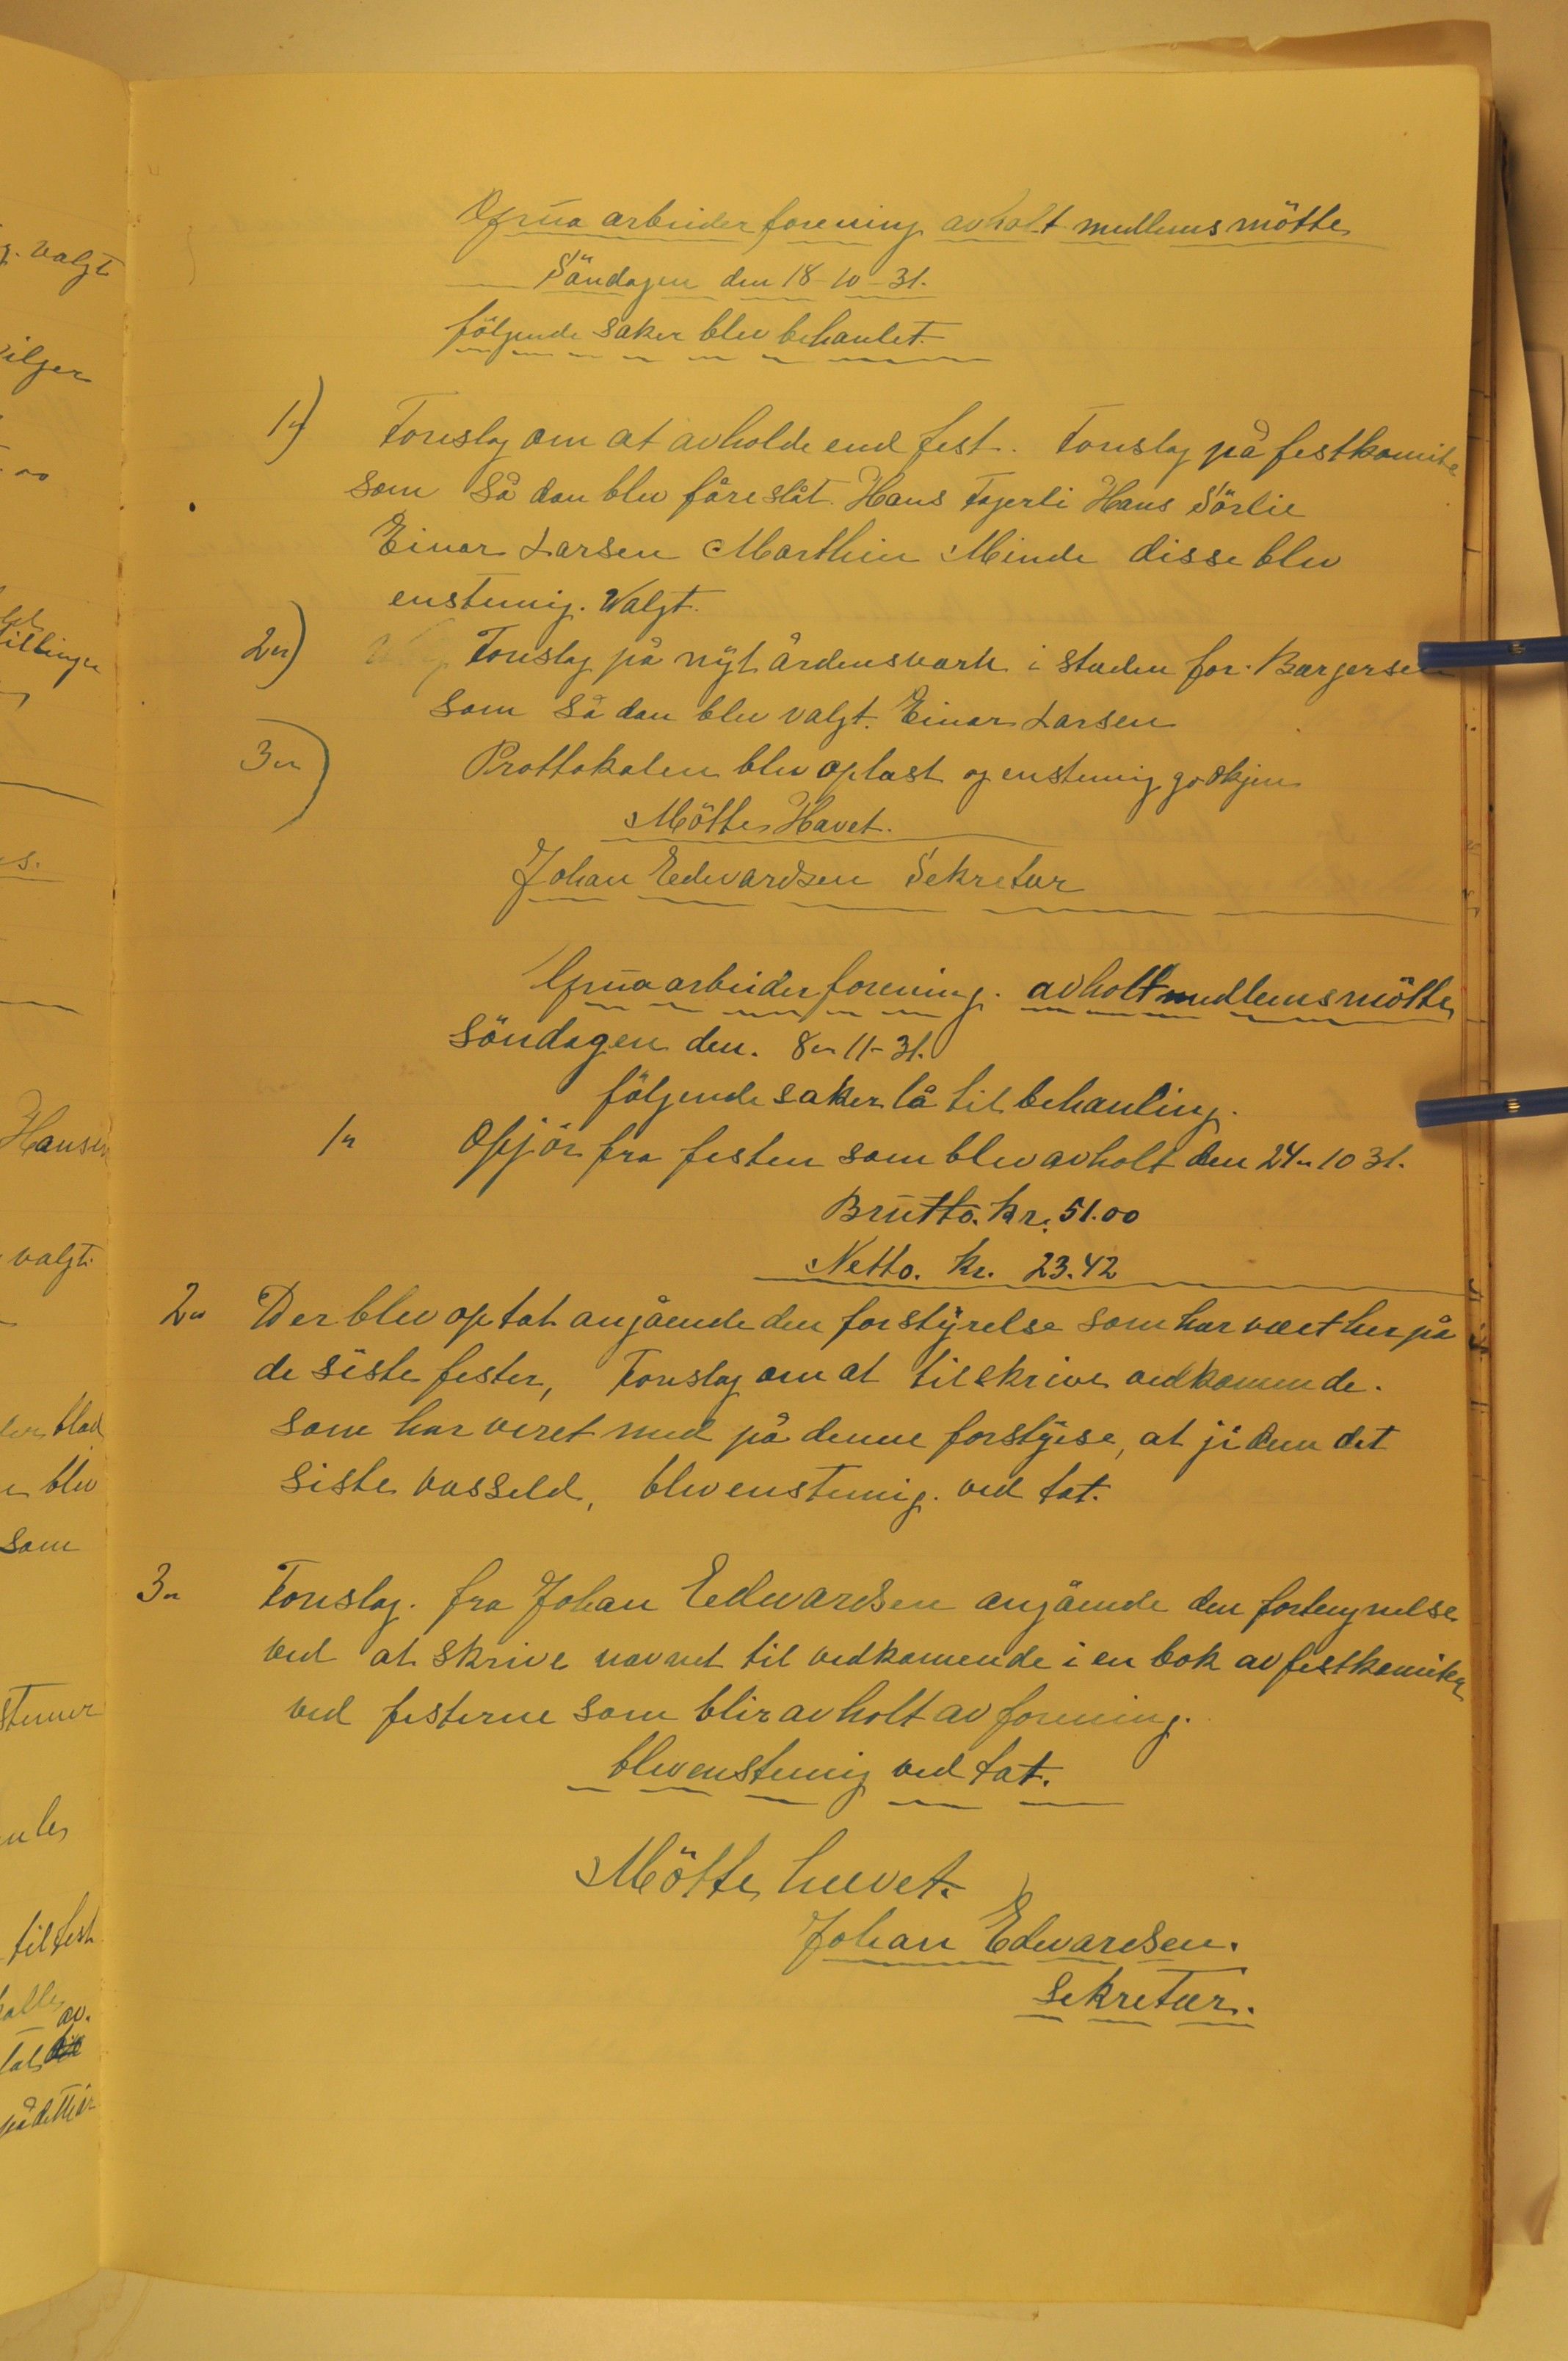 Grua arbeider forening avholt medlemsmötte
Söndagen den 18-10-31.
fölgende saker blev behanlet.
1) Forislag om at avholde end fest. Forislag på festkomite
som så dan blev fåreslåt. Hans Fagerli Hans Sörlie
Einar Larsen Marthin Minde disse blev
enstemig. Valgt.
2) Forislag på nyt årdensværn i steden for. Børgersen
som så dan blev valgt. Einar Larsen
3) Prottokolen blev oplæst og enstemig godkjen
Mötte Hævet.
Johan Eedvardsen Sekretær
Grua arbeider forening. avholt medlemsmötte
Söndagen den. 8-11-31.
fölgende saker lå til behanling.
1 Opjör fra festen som blev avholt den 24-10 31.
Brutto. Kr. 51.00
Netto. Kr. 23.42
2 Der blev optat angående den forstyrelse som har været her på
de siste fester, Forislag om at tilskrive vedkomende.
som har veret med på denne forstyrise, at ji dem det
siste vasseld, blev enstemig. ved tat.
3 Forislag. fra Johan Eedvardsen angående den fortegnelse
ved at skrive navnet til vedkomende i en bok av festkomiten
ved festerne som blir avholt av forening.
blev enstemig ved tat.
Mötte heevet.
Johan Edvardsen.
Sekretær.